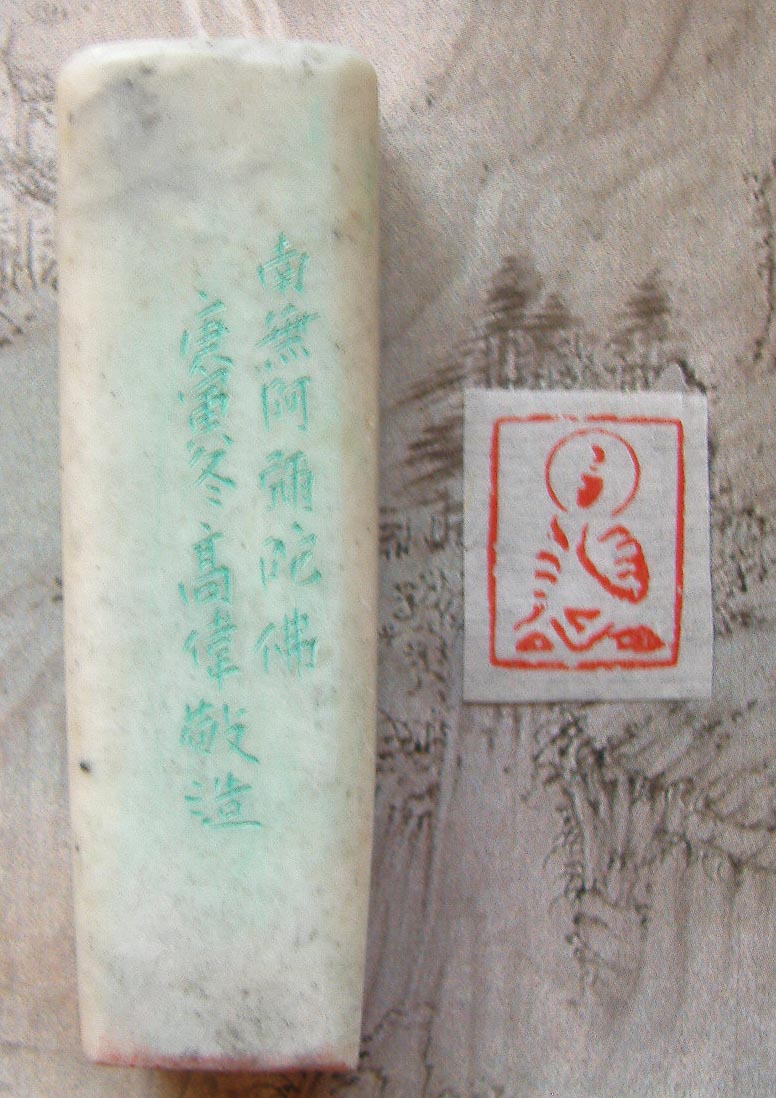 南無阿彌陀佛
庚寅冬高偉敬造